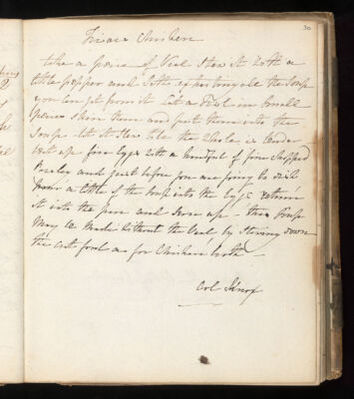 30
take a piece of Veal Stew it with a
little pepper and Salt
you can get from it Cut a Fowl in Small
pieces skin them and put them into the
Soup let it Stew till the Whole is tender
beat up five Eggs with a handful of fine Chopped
Parsley and just before you are going to dish
a little of the Soup into the Eggs return
it into the pan and Serve up - this Soup
May be Made Without the Veal by Stewing down
the fowl as for Chicken broth
Col Knox